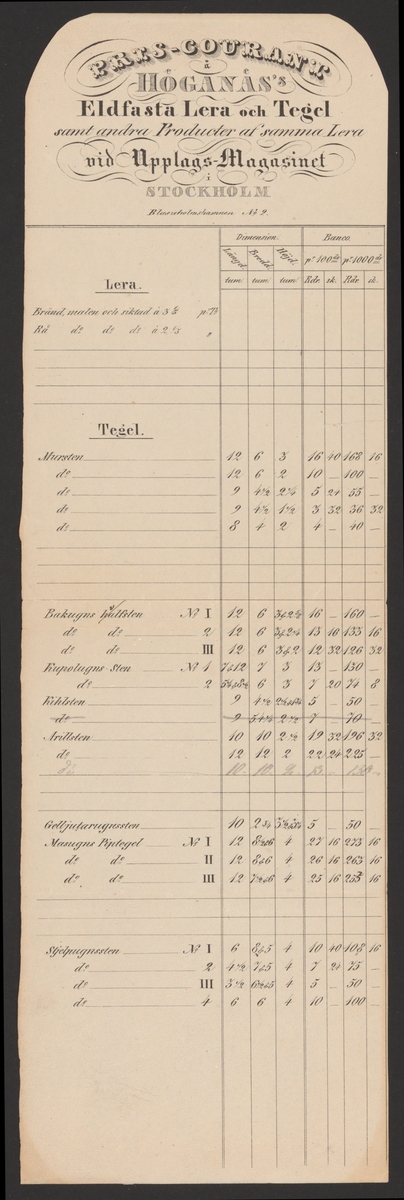 PRIS-COURANT
å
HÖGANÄS's
Eldfasta Lera och Tegel
samt andra Producter af samma Lera
vid Upplags-Magasinet
i
STOCKHOLM
Blasieholmshamnen No 9.
Dimension. Banco.
Längd. Bredd. Höjd. pr 100 pr 1000
tum tum tum Rdr. sk. Rdr. sk.
Lera.
Bränd, malen och siktad à 3
Rå do do do à 2
Tegel.
Mursten 12 6 3 16 40 168 16
do 12 6 2 10 — 100 —
do 9 4½ 2¼ 5 24 55 —
do 9 4½ 1½ 3 32 36 32
do 8 4 2 4 — 40 —
Bakugns hvalfsten No I 12 6 3/4 2½ 16 — 160 —
do do 2 12 6 13 16 133 16
do do III 12 6 3 à 2 12 32 126 32
Kupolugns-Sten No 1 7 à 12 7 3 13 — 130 —
do 2 6 3 7 20 74 8
Kihlsten 9 4½ 5 — 50 —
do 9 2½ 7 70
Arillsten 10 10 2½ 19 32 196 32
do 12 12 2 22 24 225 —
do 10 10 2
Gelbjutarugnssten 10 5 — 50 —
Masugns Piptegel No I 12 4 27 16 273 16
do do II 12 8 à 6 4 26 16 263 16
do do III 12 4 25 16 253 16
Stjelpugnssten No I 6 8 à 5 4 10 40 108 16
do 2 4½ 7 à 5 4 7 24 75 —
do III 3½ 4 5 — 50 —
do 4 6 6 4 10 — 100 —